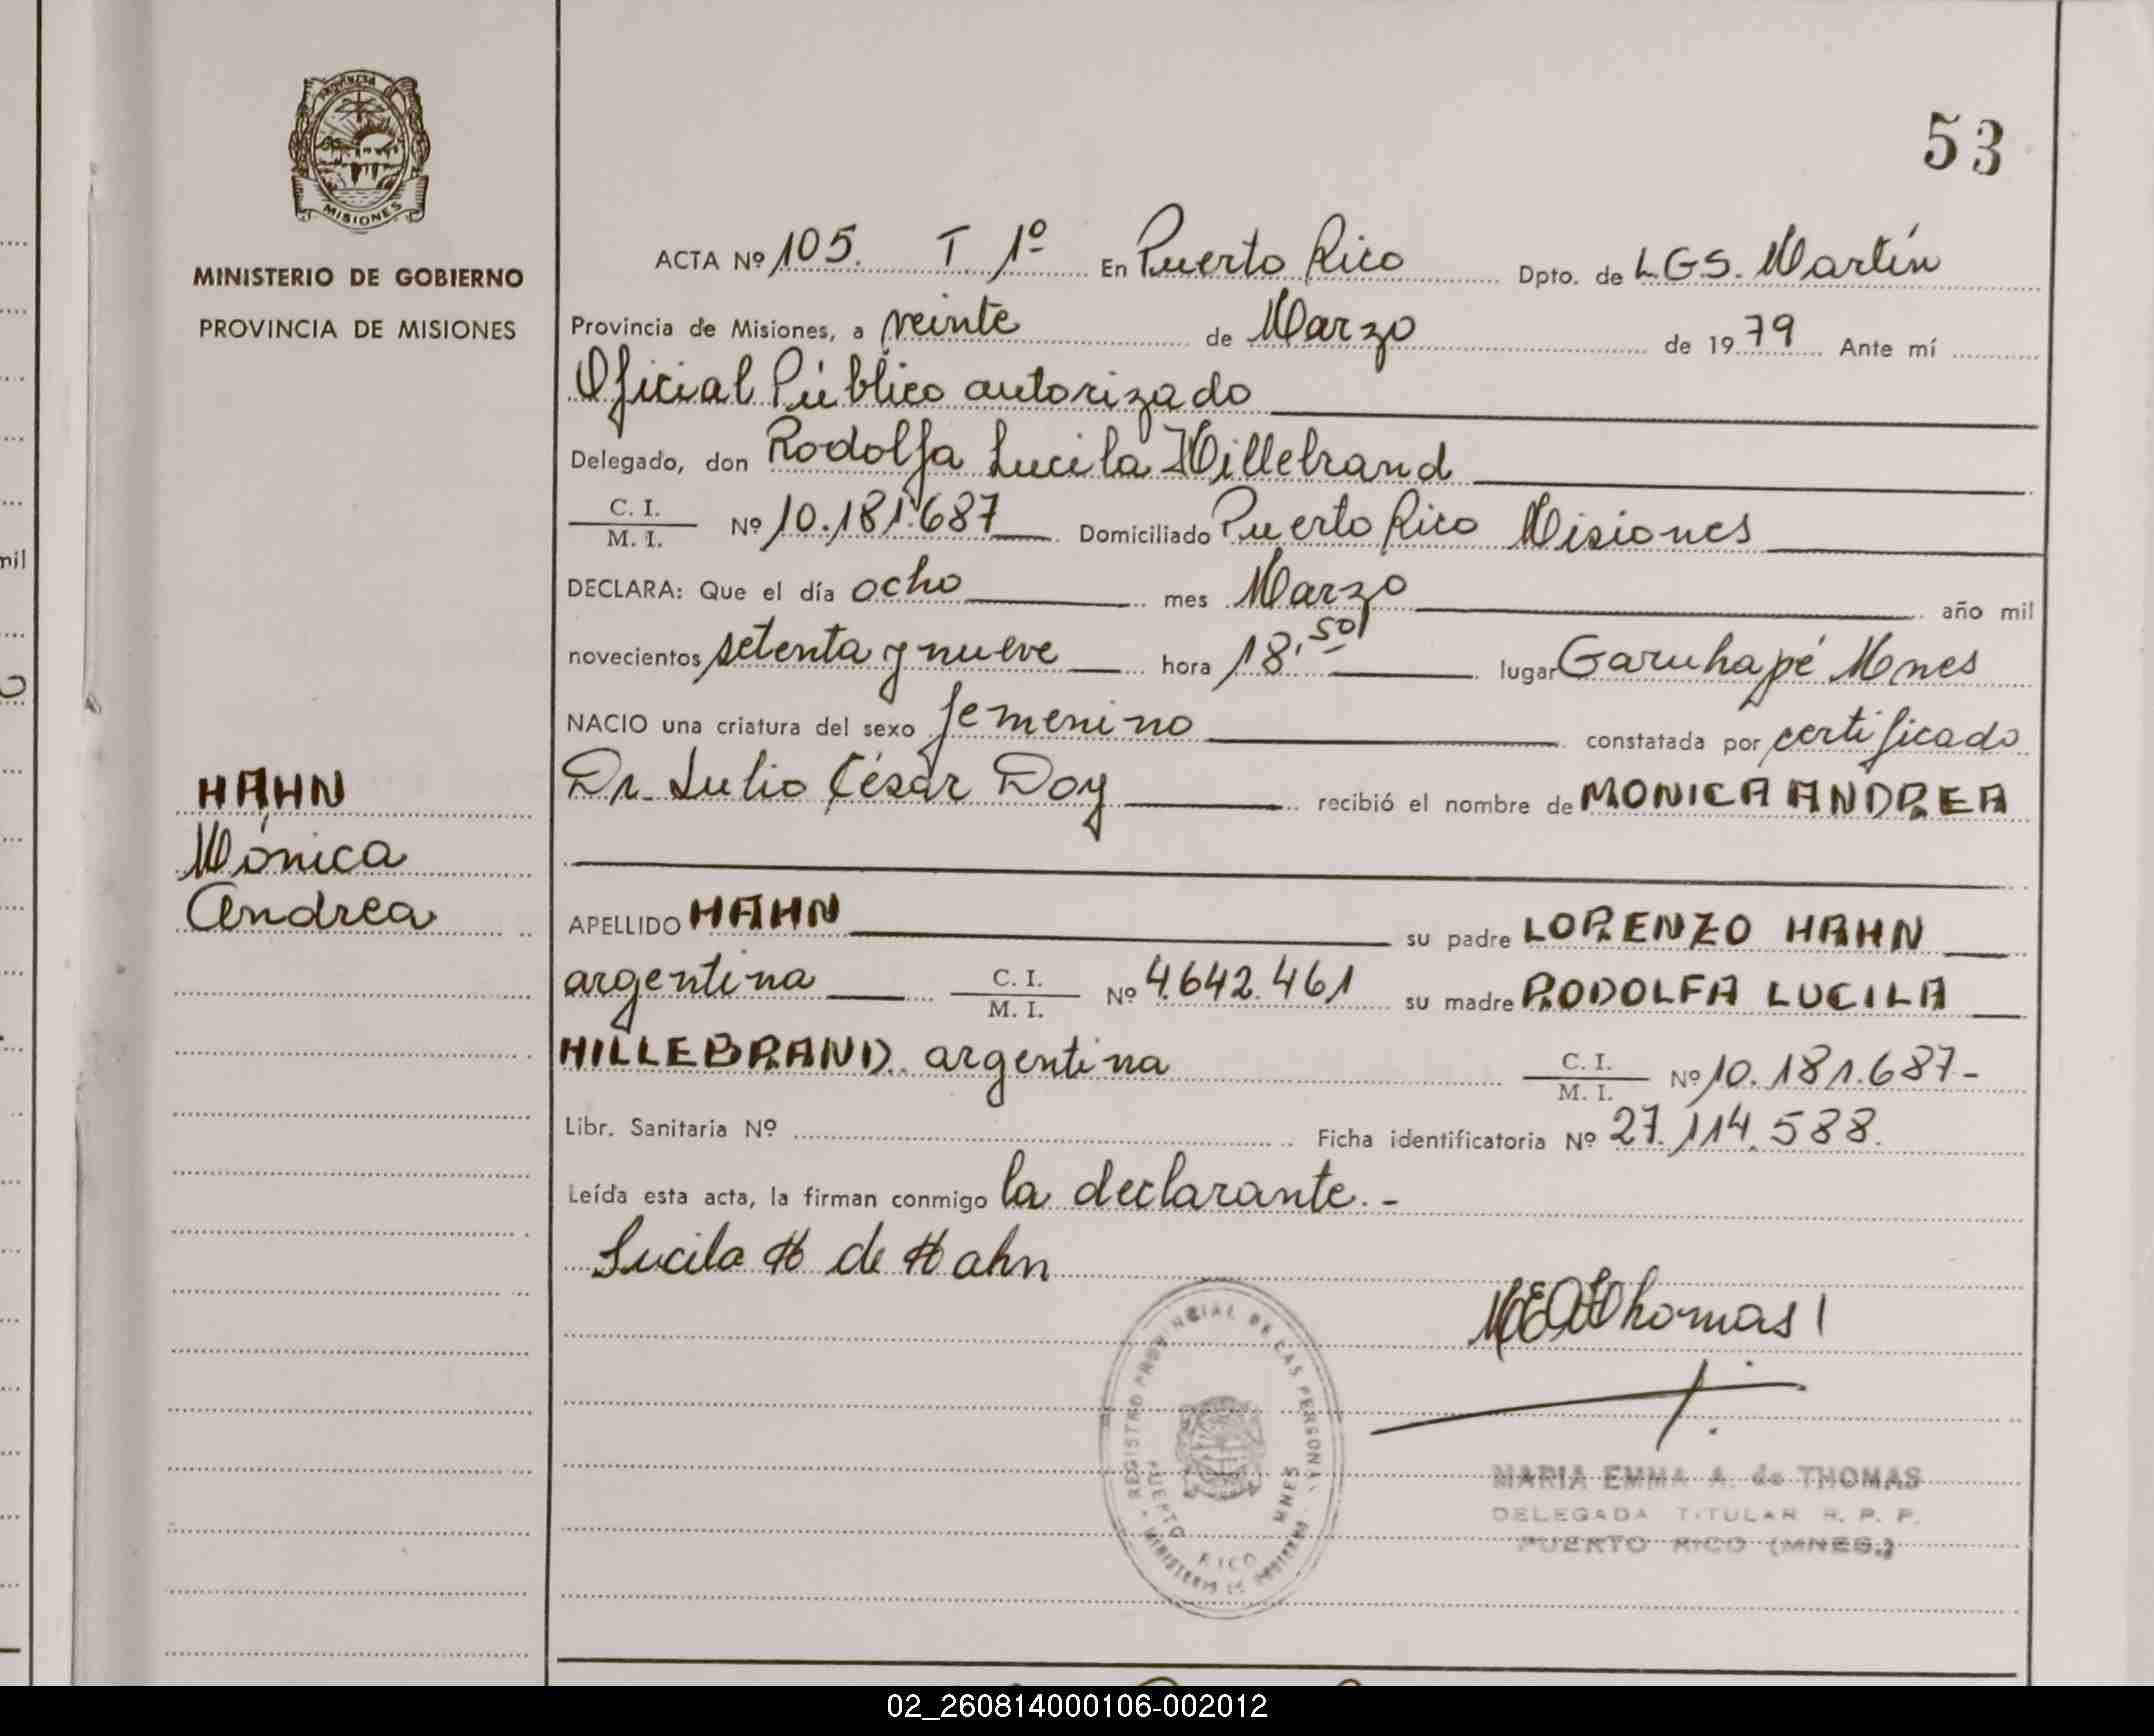 53
PROVINCIA DE
MISIONES
MINISTERIO DE GOBIERNO
PROVINCIA DE MISIONES
HAHN
Mónica
Andrea
ACTA Nº 105. T 1º En Puerto Rico Dpto. de L.G.S. Martín
Provincia de Misiones, a veinte de Marzo de 1979 Ante mí
Oficial Público autorizado
Delegado, don Rodolfa Lucila Hillebrand
C. I.
M. I. Nº 10.181.687 Domiciliado Puerto Rico Misiones
DECLARA: Que el día ocho mes Marzo año mil
novecientos setenta y nueve hora 18,50 lugar Garuhapé Mnes
NACIO una criatura del sexo femenino constatada por certificado
Dr. Julio César Doy recibió el nombre de MONICA ANDREA
APELLIDO HAHN su padre LORENZO HAHN
argentina C. I.
M. I. Nº 4.642.461 su madre RODOLFA LUCILA
HILLEBRAND argentina C. I.
M. I. Nº 10.181.687-
Libr. Sanitaria Nº Ficha identificatoria Nº 27.114.588.
Leída esta acta, la firman conmigo la declarante.-
Lucila H de Hahn
Thomas
REGISTRO PROVINCIAL DE LAS PERSONAS
PUERTO RICO MNES
MINISTERIO DE GOBIERNO
MARIA EMMA A. de THOMAS
DELEGADA TITULAR R. P. P.
PUERTO RICO (MNES.)
mil
02_260814000106-002012